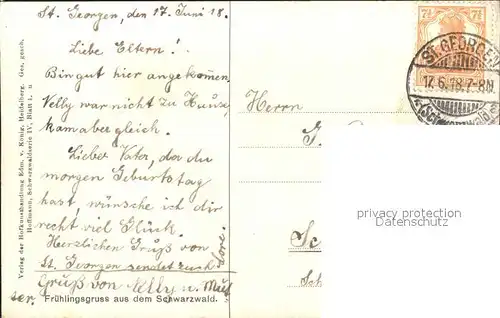 St. Georgen, den 17. Juni 18.
Liebe Eltern!
Bin gut hier angekommen,
Nelly war nicht zu Hause,
kam aber gleich.
Lieber Vater, da du
morgen Geburtstag
hast, wünsche ich dir
recht viel Glück.
Herzlichen Gruß von
St. Georgen sendet euch
Lore.
Gruß von Nelly u. Mut
ter.
Frühlingsgruss aus dem Schwarzwald.
Verlag der Hofkunsthandlung Edm. v. König, Heidelberg. Ges. gesch.
Hoffmann, Schwarzwaldserie IV, Blatt 1. u
Herrn
7½ 7½
ST. GEORGEN
17.6.18.7-8N.
(Schwarzwald)
privacy protection
Datenschutz